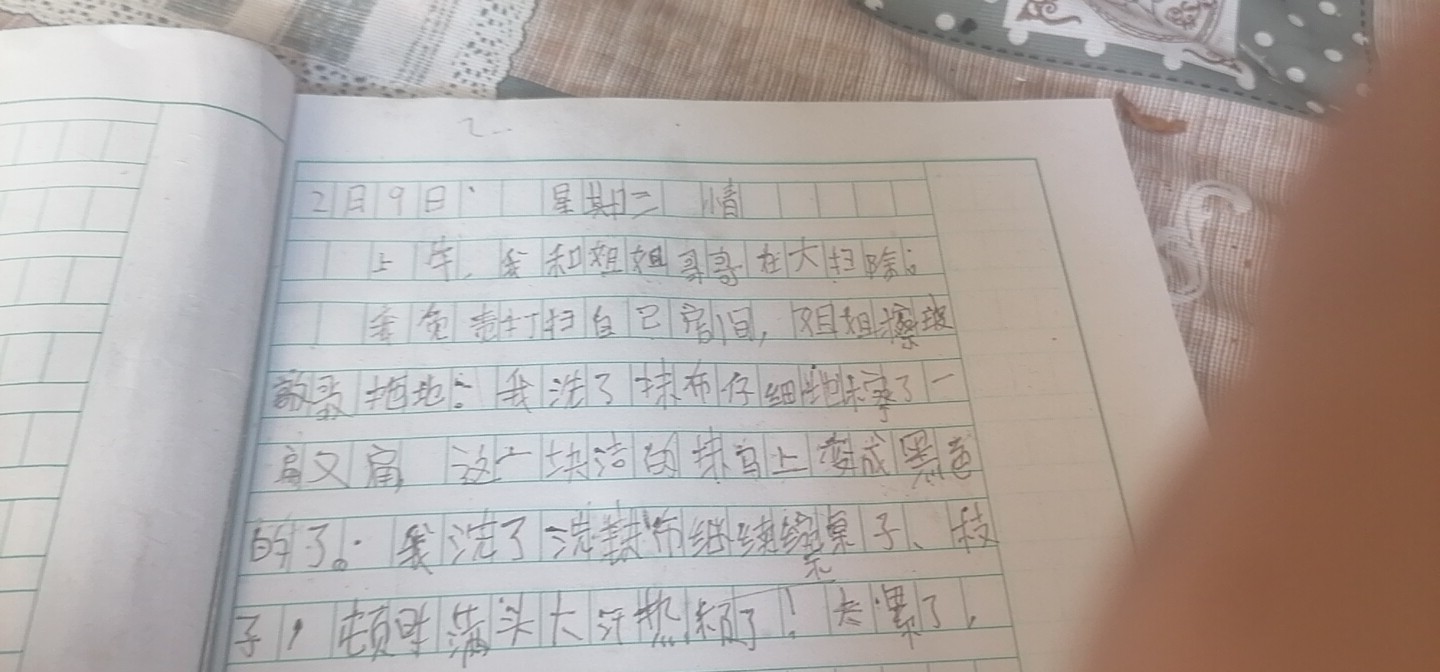 2月9日 星期二 情
上午,我和姐姐哥哥在大扫除。
我负责打扫自己房间,姐姐擦玻
拖地。我洗了抹布仔细地擦了一
又 这一块洁的抹 上变成黑色
的了。我洗了洗抹布继续擦桌子、
子,顿时满头大汗热 了!太累了,